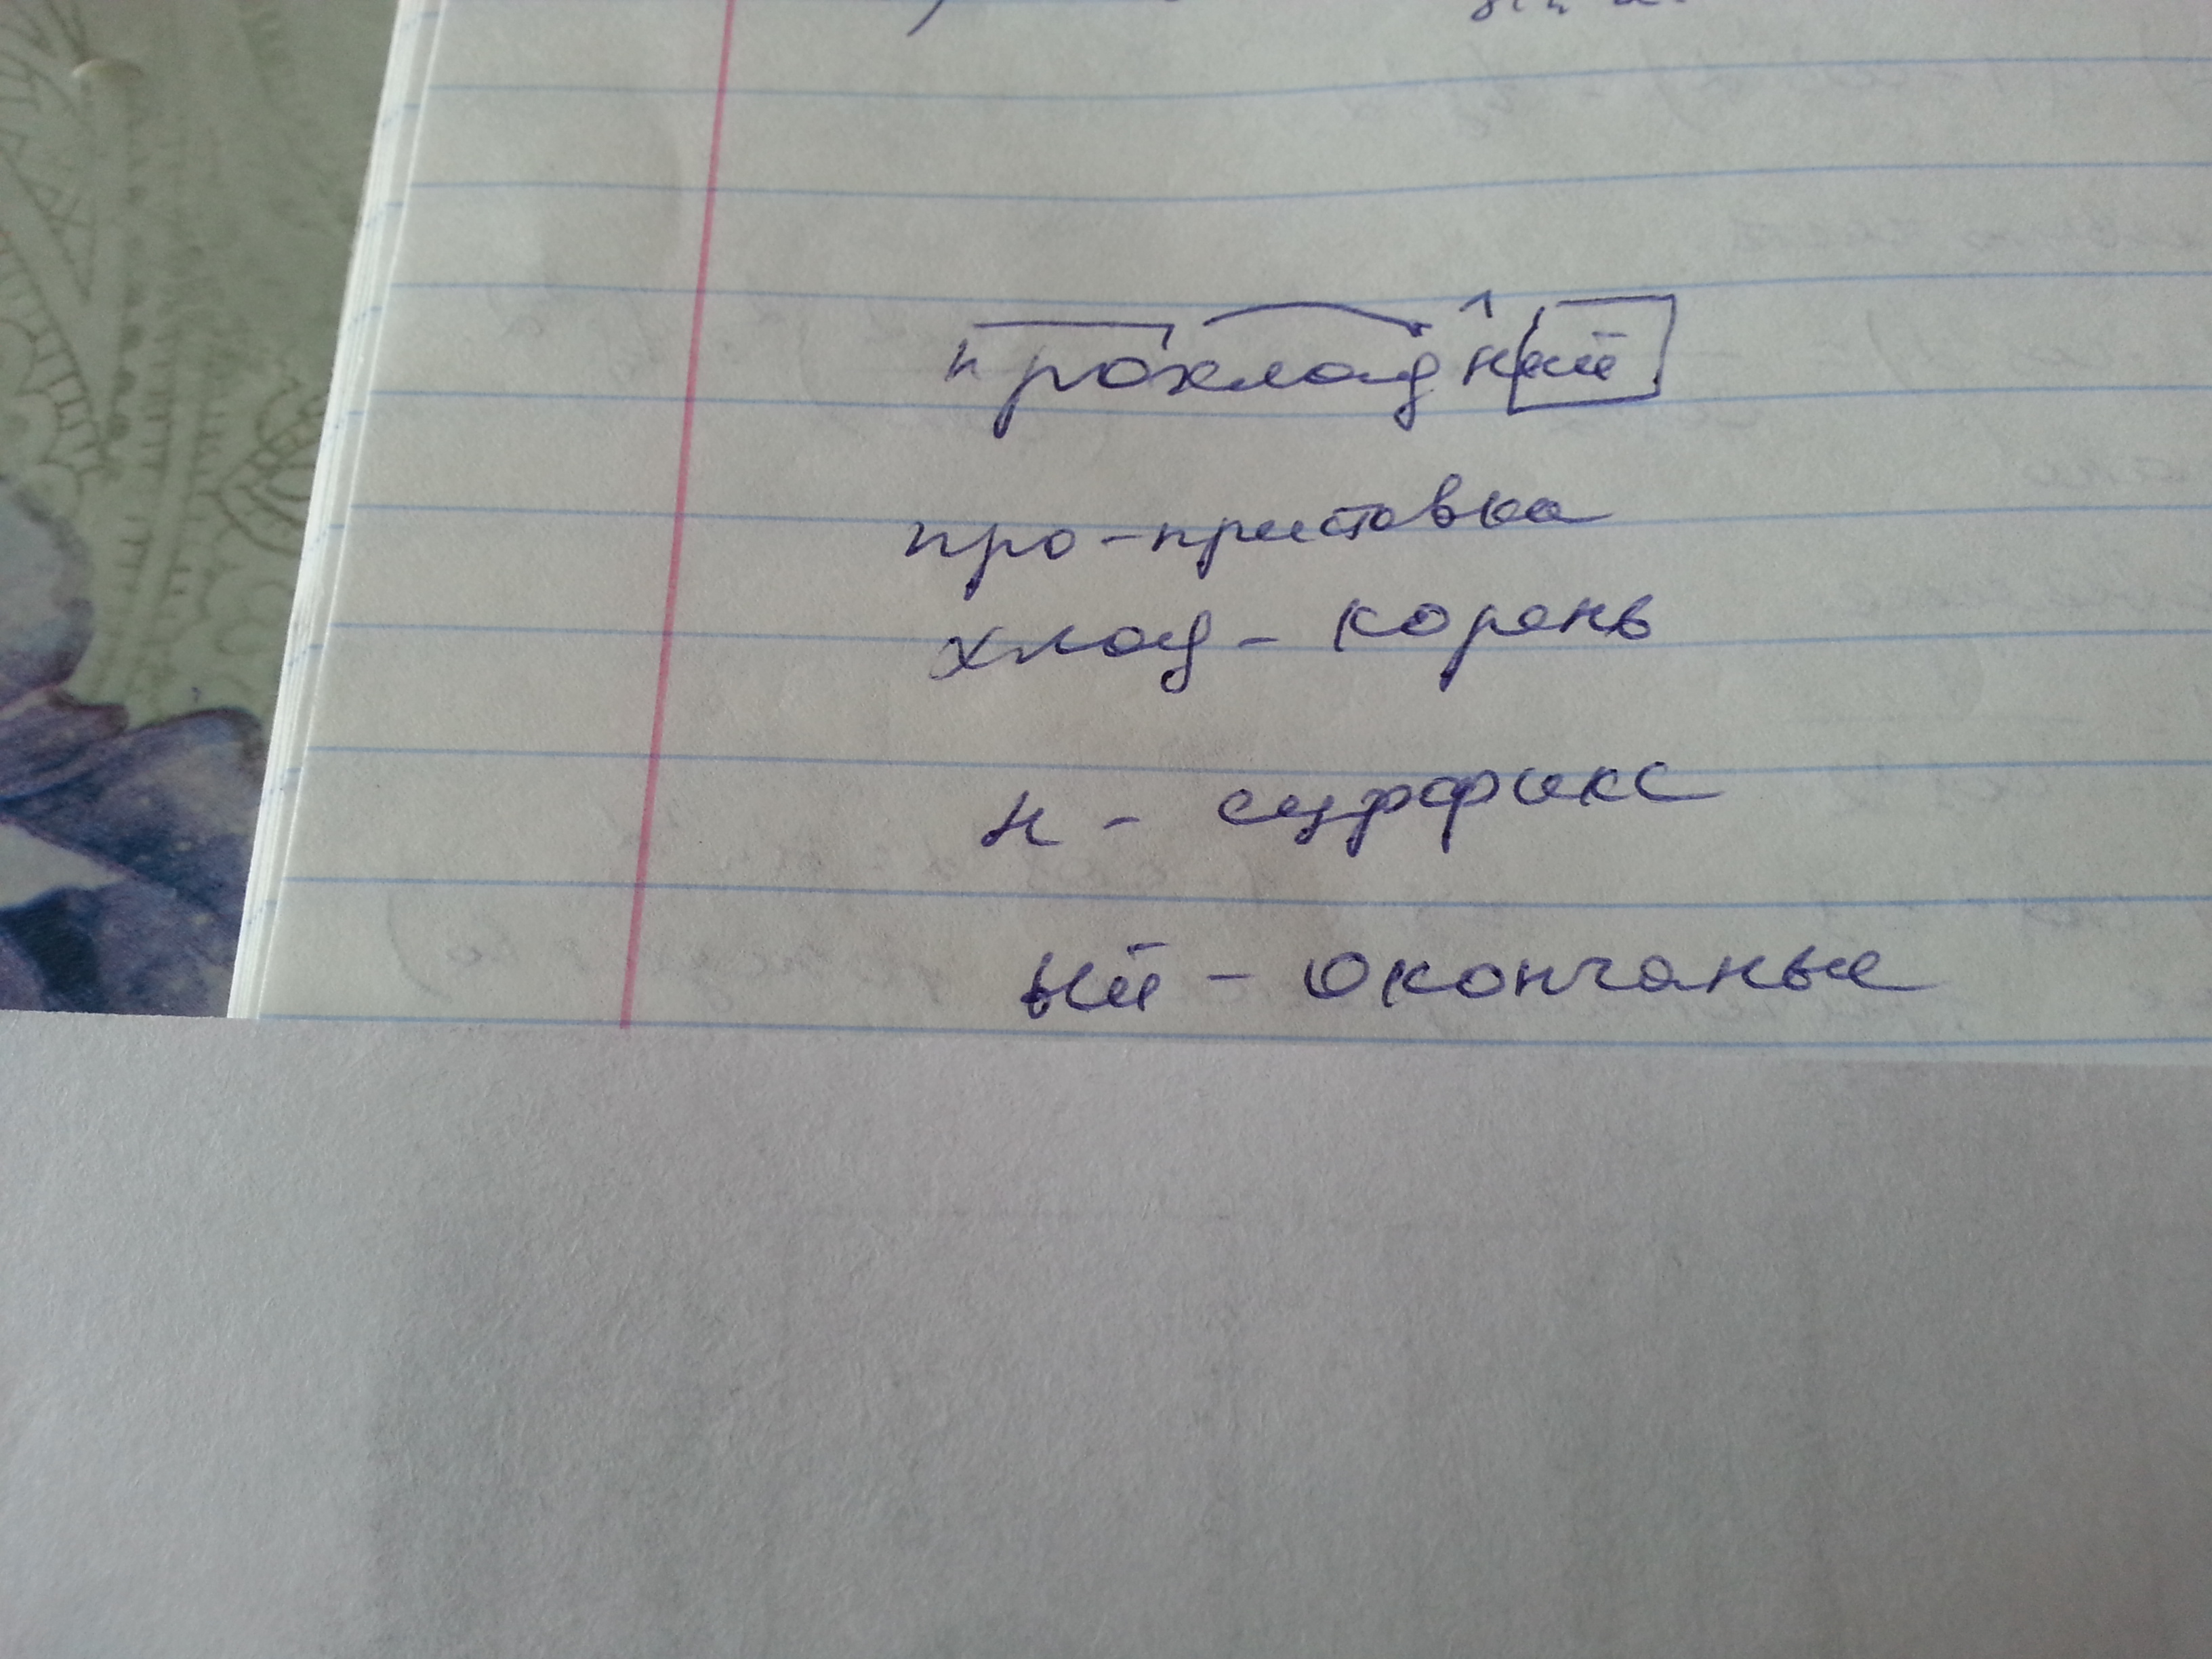 прохладный
про - приставка
хлад - корень
н - суффикс
ый - окончанье